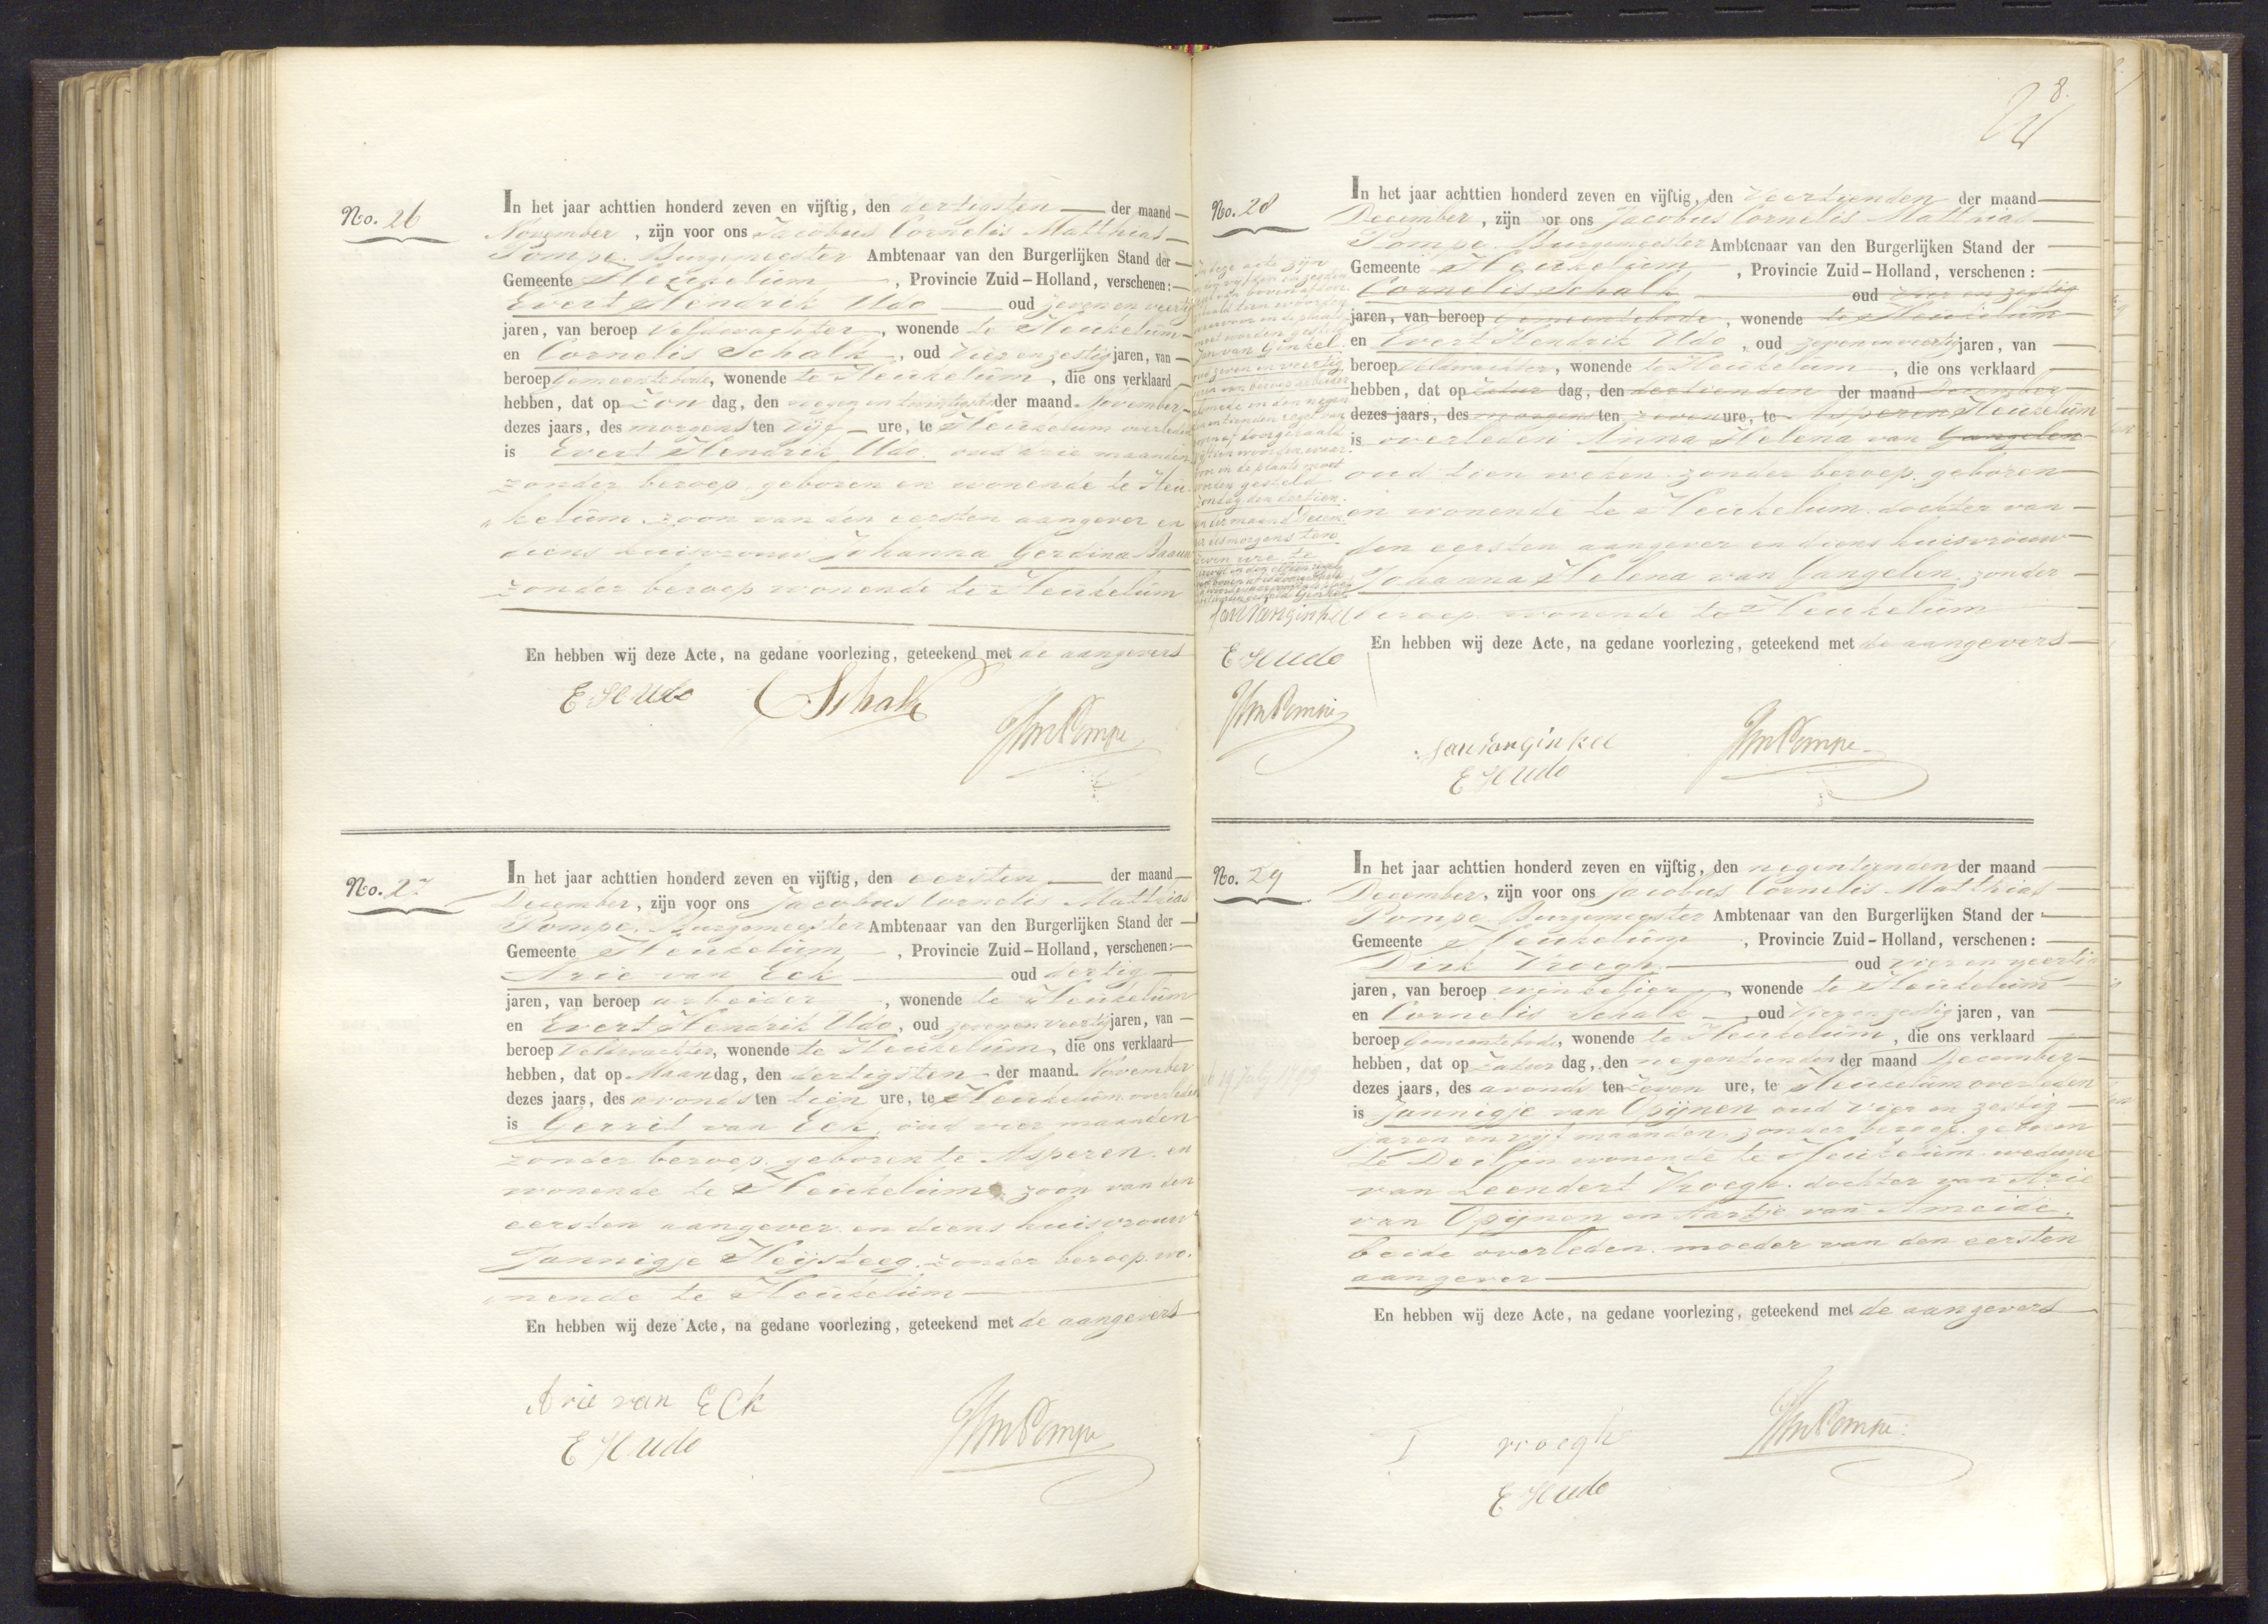 No. 26
In het jaar achttien honderd zeven en vijftig, den dertigsten der maand
November, zijn voor ons Jacobus Cornelis Matthias
Pompe. Burgemeester Ambtenaar van den Burgerlijken Stand der
Gemeente Heukelum, Provincie Zuid-Holland, verschenen:
Evert Hendrik Udo oud zeven en veertig
jaren, van beroep Veldwachter, wonende te Heukelum
en Cornelis Schalk, oud vier en zestig jaren, van
beroep Gemeentebode, wonende te Heukelum, die ons verklaard
hebben, dat op Zondag, den negen en twintigsten der maand November
dezes jaars, des morgens ten vijf ure, te Heukelum overleden
is Evert Hendrik Udo. oud drie maanden
zonder beroep, geboren en wonende te Heu
kelum, zoon van den eersten aangever en
diens huisvrouw Johanna Gerdina Baauw
zonder beroep wonende te Heukelum
En hebben wij deze Acte, na gedane voorlezing, geteekend met de aangevers
E H Udo CSchalk
JCMPompe
No. 27
In het jaar achttien honderd zeven en vijftig, den eersten der maand
December, zijn voor ons Jacobus Cornelis Matthias
Pompe. Burgemeester Ambtenaar van den Burgerlijken Stand der
Gemeente Heukelum, Provincie Zuid-Holland, verschenen:
Arie van Eck oud dertig
jaren, van beroep arbeider, wonende te Heukelum
en Evert Hendrik Udo, oud zeven en veertig jaren, van
beroep Veldwachter, wonende te Heukelum, die ons verklaard
hebben, dat op Maandag, den dertigsten der maand November
dezes jaars, des avonds ten tien ure, te Heukelum overleden
is Gerrit van Eck, oud vier maanden
zonder beroep, geboren te Asperen en
wonende te Heukelum, zoon van den
eersten aangever en diens huisvrouw
Jannigje Heijsteeg, zonder beroep wo
nende te Heukelum
En hebben wij deze Acte, na gedane voorlezing, geteekend met de aangevers
Arie van Eck
E H Udo
JCMPompe
8.
No. 28
In het jaar achttien honderd zeven en vijftig, den Veertienden der maand
December, zijn voor ons Jacobus Cornelis Matthias
Pompe. Burgemeester Ambtenaar van den Burgerlijken Stand der
Gemeente Heukelum, Provincie Zuid-Holland, verschenen:
Cornelis Schalk oud vier en zestig
jaren, van beroep Gemeentebode, wonende te Heukelum
en Evert Hendrik Udo, oud zeven en veertig jaren, van
beroep Veldwachter, wonende te Heukelum, die ons verklaard
hebben, dat op Zaturdag, den dertienden der maand December
dezes jaars, des morgens ten zeven ure, te Asperen Heukelum
is overleden Anna Helena van Gangelen
oud tien weken zonder beroep, geboren
en wonende te Heukelum, dochter van
den eersten aangever en diens huisvrouw
Johanna Helena van Gangelen, zonder
beroep wonende te Heukelum
En hebben wij deze Acte, na gedane voorlezing, geteekend met de aangevers
In deze acte zijn
moet worden gesteld
Jan van Ginkel
oud zeven en veertig
in de plaats moet
worden gesteld
Zondag den dertien
der maand Decem
ber des morgens ten
zeven ure te
Jan van ginkel
E H Udo
JCMPompe
Jan van ginkel
E H Udo
JCMPompe
No. 29
In het jaar achttien honderd zeven en vijftig, den negentienden der maand
December, zijn voor ons Jacobus Cornelis Matthias
Pompe Burgemeester Ambtenaar van den Burgerlijken Stand der
Gemeente Heukelum, Provincie Zuid-Holland, verschenen:
Dirk Vroegh oud vier en veertig
jaren, van beroep winkelier, wonende te Heukelum
en Cornelis Schalk, oud vier en zestig jaren, van
beroep Gemeentebode, wonende te Heukelum, die ons verklaard
hebben, dat op Zaturdag, den negentienden der maand December
dezes jaars, des avonds ten zeven ure, te Heukelum overleden
is Jannigje van Opijnen oud vier en zestig
jaren en vijf maanden, zonder beroep, geboren
te Deil en wonende te Heukelum weduwe
van Leendert Vroegh. dochter van Arie
van Opijnen en Aartje van Ameide.
beide overleden. moeder van den eersten
aangever
En hebben wij deze Acte, na gedane voorlezing, geteekend met de aangevers
vroegh
E H Udo
JCMPompe